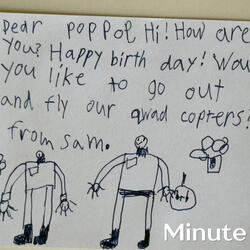 Dear POPPOP Hi! How are
You? Happy birth day! Wou
you like to go out
and fly our qwad copters?
from Sam.
Minute